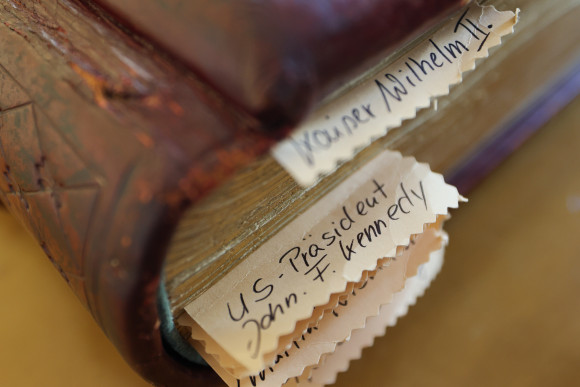 Kaiser Wilhelm II.
US-Präsident
John. F. Kennedy